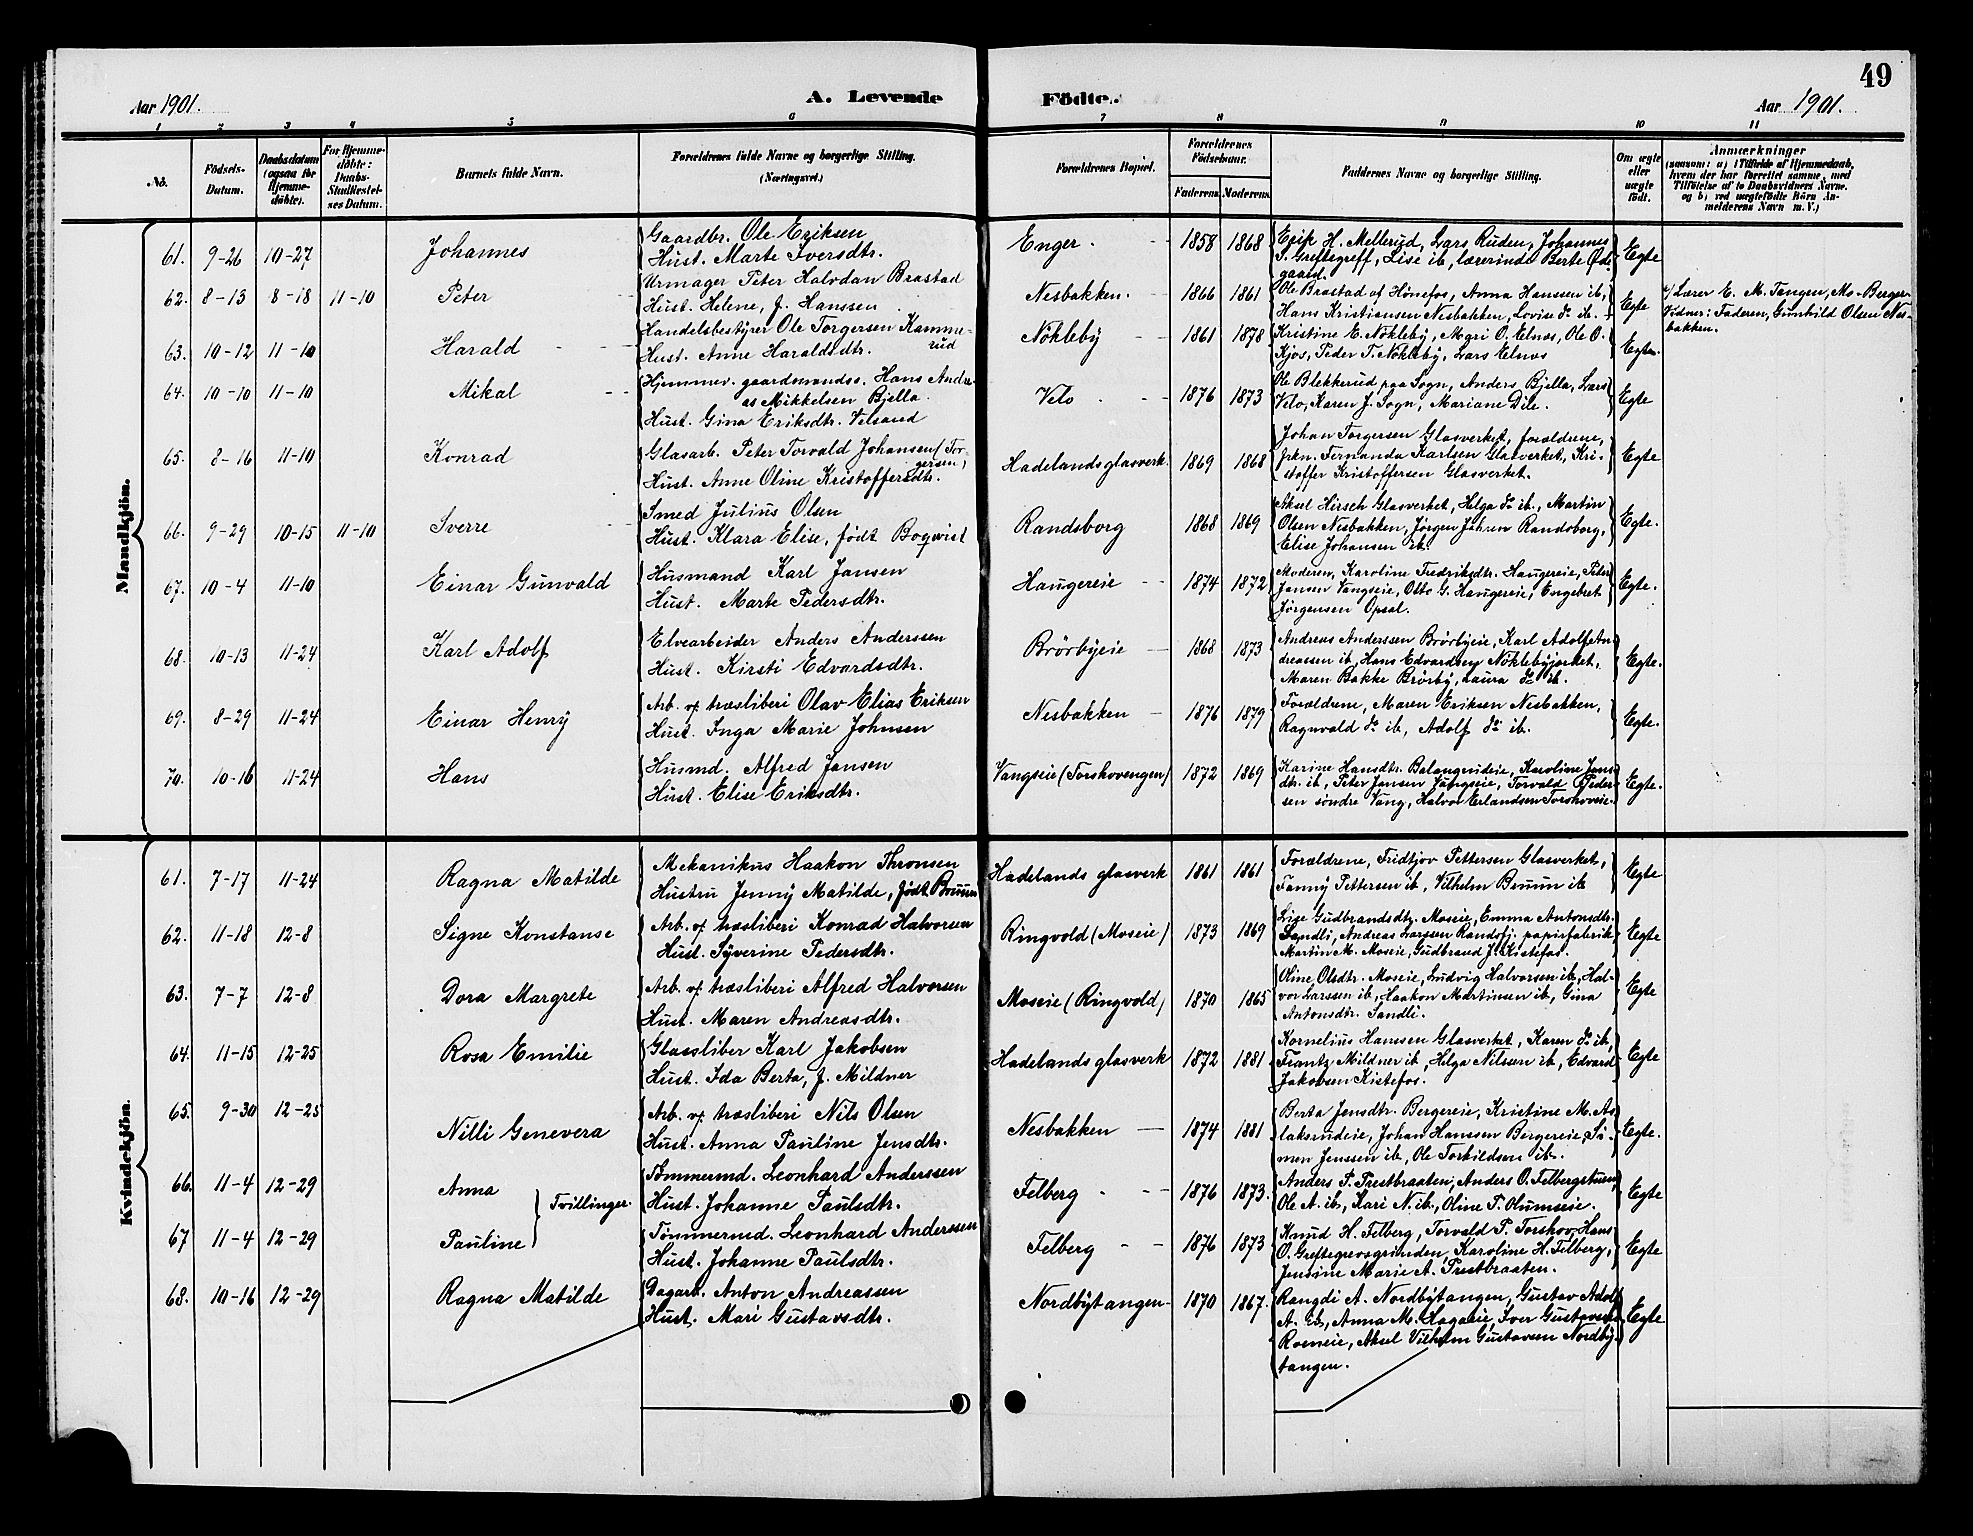 49
Aar 1901.
A. Levende
Födte.
Aar 1901.
1 2 3 4 5 6 7 8 9 10 11
No.
Födsels-
Datum.
Daabsdatum
(ogsaa for
Hjemme-
döbte).
For Hjemme-
döbte:
Daabs-
Stadfæstel-
ses Datum.
Barnets fulde Navn.
Forældrenes fulde Navne og borgerlige Stilling.
(Næringsvei.)
Forældrenes Bopæl.
Forældrenes
Födselsaar.
Faderens. Moderens.
Faddernes Navne og borgerlige Stilling.
Om ægte
eller
uægte
födt.
Anmærkninger
(saasom: a) i Tilfælde af Hjemmedaab,
hvem der har forrettet samme, med
Tilföielse af to Daabsvidners Navne.
og b) ved uægtefödte Börn An-
melderens Navn m. V.)
Mandkjön.
61. 9-26 10-27 Johannes
Gaardbr. Ole Eriksen
Hust. Marte Iversdtr.
Enger. 1858 1868
Erik H. Mellerud, Lars Ruden, Johannes
P. Greftegreff, Lise ib, lærerinde Berte Øde-
gaard.
Egte
62. 8-13 8-18 11-10 Peter
Urmager Peter Halvdan Brastad
Hust. Helene, f. Hanssen
Nesbakken. 1866 1861
Ole Brastad af Hönefos, Anna Hanssen ib,
Hans Kristiansen Nesbakken, Lovise do ib.
Egte
a/ Lærer E. M. Tangen, Mo-Berger-
Vidner: Faderen, Gunhild Olsen Nes-
bakken.
63. 10-12 11-10 Harald
Handelsbestyrer Ole Torgersen Kamme-
rud
Hust. Anne Haraldsdtr.
Nökleby 1861 1878
Kristine E. Nökleby, Mari O. Elnæs, Ole O.
Kjos, Peder T. Nökleby, Lars Elnæs
Egte.
64. 10-10 11-10 Mikal
Hjemmev. gaardmands. Hans Andre-
as Mikkelsen Bjella.
Hust. Gina Eriksdtr. Velsand
Velo 1876 1873
Ole Blekkerud paa Sogn, Anders Bjella, Lars
Velo, Karen J. Sogn, Mariane Dile.
Egte
65. 8-16 11-10 Konrad
Glasarb. Peter Torvald Johansen (Tor-
gersen)
Hust. Anne Oline Kristoffersdtr.
Hadelands glasverk. 1869 1868
Johan Torgersen Glasverket, forældrene,
frkn. Fernanda Karlsen Glasverket, Kri-
stoffer Kristoffersen Glasverket.
Egte
66. 9-29 10-15 11-10 Sverre
Smed Julius Olsen
Hust. Klara Elise, født Boqvist
Randsborg 1868 1869
Aksel Hirsch Glasverket, Helga do ib., Martin
Olsen Nesbakken, Jørgen Johnsen Randsborg,
Elise Johansen ib.
Egte.
67. 10-4 11-10 Einar Gunvald
Husmand Karl Jansen
Hust. Marte Pedersdtr.
Haugereie 1874 1872
Moderen, Karoline Fredriksdtr. Haugereie, Peter
Jansen Vangseie, Otto G. Haugereie, Engebret
Jørgensen Opsal.
Egte.
68. 10-13 11-24 Karl Adolf
Elvearbeider Anders Anderssen
Hust. Kirsti Edvardsdtr.
Brörbyeie 1868 1873
Andreas Anderssen Brörbyeie, Karl Adolf An-
dreassen ib, Hans Edvardsen Nöklebyjordet,
Maren Bakke Brörby, Laura do ib.
Egte.
69. 8-29 11-24 Einar Henry
Arb. v/ træsliberi Olav Elias Eriksen
Hust. Inga Marie Johnsen
Nesbakken 1876 1879
Forældrene, Maren Eriksen Nesbakken,
Ragnvald do ib, Adolf do ib.
Egte.
70. 10-16 11-24 Hans
Husmd. Alfred Jansen
Hust. Elise Eriksdtr.
Vangseie (Torshovengen) 1872 1869
Karine Hansdtr. Balangrudeie, Karoline Jans-
dtr. ib, Peter Jansen Vangseie, Torvald Peder-
sen söndre Vang, Halvor Erlandsen Torshoveie.
Egte.
Kvindekjön.
61. 7-17 11-24 Ragna Matilde
Mekanikus Haakon Thronsen
Hustru Jenny Matilde, født Bruun
Hadelands glasverk 1861 1861
Forældrene, Fridtjov Pettersen Glasverket,
Fanny Pettersen ib, Vilhelm Bruun ib
Egte
62. 11-18 12-8 Signe Konstanse
Arb. v/ træsliberi Konrad Halvorsen
Hust. Syverine Pedersdtr.
Ringvold (Moseie) 1873 1869
Lise Gudbrandsdtr. Moseie, Emma Antonsdtr.
Sandli, Andreas Larssen Randsfj. papirfabrik,
Martin M. Moseie, Gudbrand J. Kistefos.
Egte
63. 7-7 12-8 Dora Margrete
Arb. v/ træsliberi Alfred Halvorsen
Hust. Maren Andreasdtr.
Moseie (Ringvold) 1870 1865
Oline Olsdtr. Moseie, Ludvig Halvorsen ib, Hal-
vor Larssen ib, Haakon Martinsen ib, Gina
Antonsdtr. Sandli.
Egte
64. 11-15 12-25 Rosa Emilie
Glassliber Karl Jakobsen
Hust. Ida Berta, f. Mildner
Hadelands glasverk 1872 1881
Kornelius Hanssen Glasverket, Karen do ib,
Frantz Mildner ib, Helga Nilsen ib, Edvard
Jakobsen Kistefos.
Egte
65. 9-30 12-25 Nilli Genevera
Arb. v/ træsliberi Nils Olsen
Hust. Anna Pauline Jensdtr.
Nesbakken 1874 1881
Berta Jensdtr. Bergereie, Kristine M. As-
laksrudeie, Johan Hanssen Bergereie, Si-
men Jenssen ib, Ole Torkildsen ib.
Egte.
66. 11-4 12-29 Anna
Tvillinger
Tømmermd. Leonhard Anderssen
Hust. Johanne Paulsdtr.
Felberg 1876 1873.
Anders P. Prestbraaten, Anders O. Felbergstuen,
Ole A. ib, Kari N. ib, Oline P. Olumseie.
Egte
67 11-4 12-29 Pauline
Tømmermd. Leonhard Anderssen
Hust. Johanne Paulsdtr.
Felberg 1876 1873
Knud H. Felberg, Torvald P. Torshov, Hans
O. Greftegrevsgrinden, Karoline H. Felberg,
Jensine Marie A. Prestbraaten.
Egte
68. 10-16 12-29 Ragna Matilde
Dagarb. Anton Andreassen
Hust. Mari Gustavsdtr.
Nordbytangen 1870 1867.
Rangdi A. Nordbytangen, Gustav Adolf
A. ib, Anna M. Hagaeie, Iver Gustavsen
Roeneie, Aksel Vilhelm Gustavsen Nordby-
tangen.
Egte